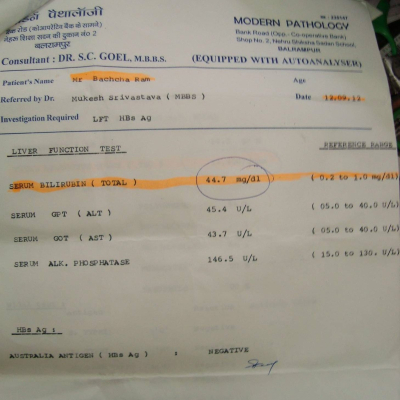 पैथालॉजी
बैंक रोड (कोआपरेटिव बैंक के सामने)
नेहरू शिक्षा सदन की दुकान नं० 2
बलरामपुर
MODERN PATHOLOGY
Bank Road (Opp.- Co-operative Bank)
Shop No. 2, Nehru Shiksha Sadan School,
BALRAMPUR
Consultant : DR. S.C. GOEL, M.B.B.S.
(EQUIPPED WITH AUTOANALYSER)
Patient's Name Mr Bachcha Ram Age
Referred by Dr. Mukesh Srivastava ( MBBS ) Date 13.09.13
Investigation Required LFT HBs Ag
LIVER FUNCTION TEST REFERENCE RANGE
SERUM BILIRUBIN ( TOTAL ) 44.7 mg/dl ( 0.2 to 1.0 mg/dl)
SERUM GPT ( ALT ) 45.4 U/L ( 05.0 to 40.0 U/L)
SERUM GOT ( AST ) 43.7 U/L ( 05.0 to 40.0 U/L)
SERUM ALK. PHOSPHATASE 146.5 U/L ( 15.0 to 130. U/L)
HBs Ag :
AUSTRALIA ANTIGEN ( HBs Ag ) : NEGATIVE